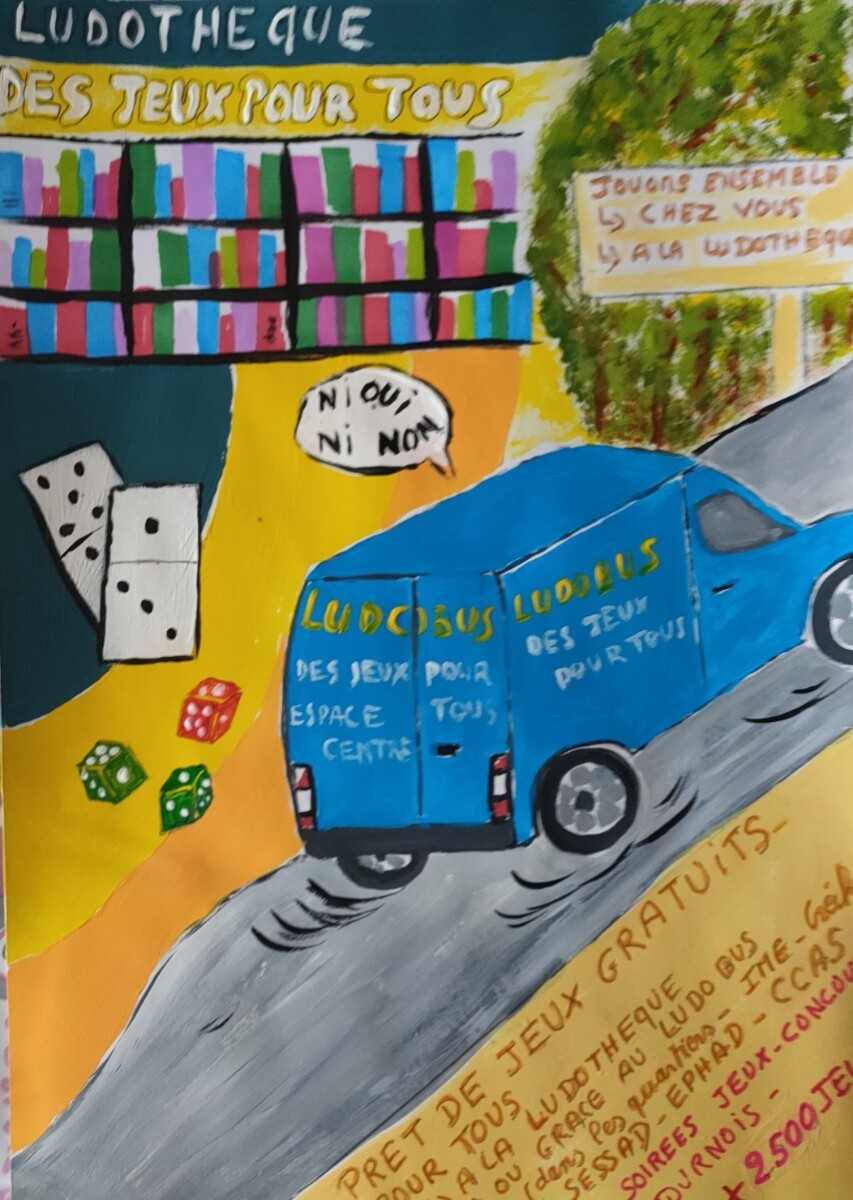 LUDOTHEQUE
DES JEUX POUR TOUS
JOUONS ENSEMBLE
↳ CHEZ VOUS
↳ A LA LUDOTHEQUE
Ni OUi
Ni NON
LUDOBUS
DES JEUX POUR
ESPACE TOUS
CENTRE
LUDOBUS
DES JEUX
POUR TOUS
PRET DE JEUX GRATUiTS-
POUR TOUS
A LA LUDOTHEQUE
OU GRACE AU LUDOBUS
(dans les quartiers - IME -
SESSAD - EPHAD - CCAS
SOIREES JEUX - CONCOU
OURNOIS -
+ 2500 JEU